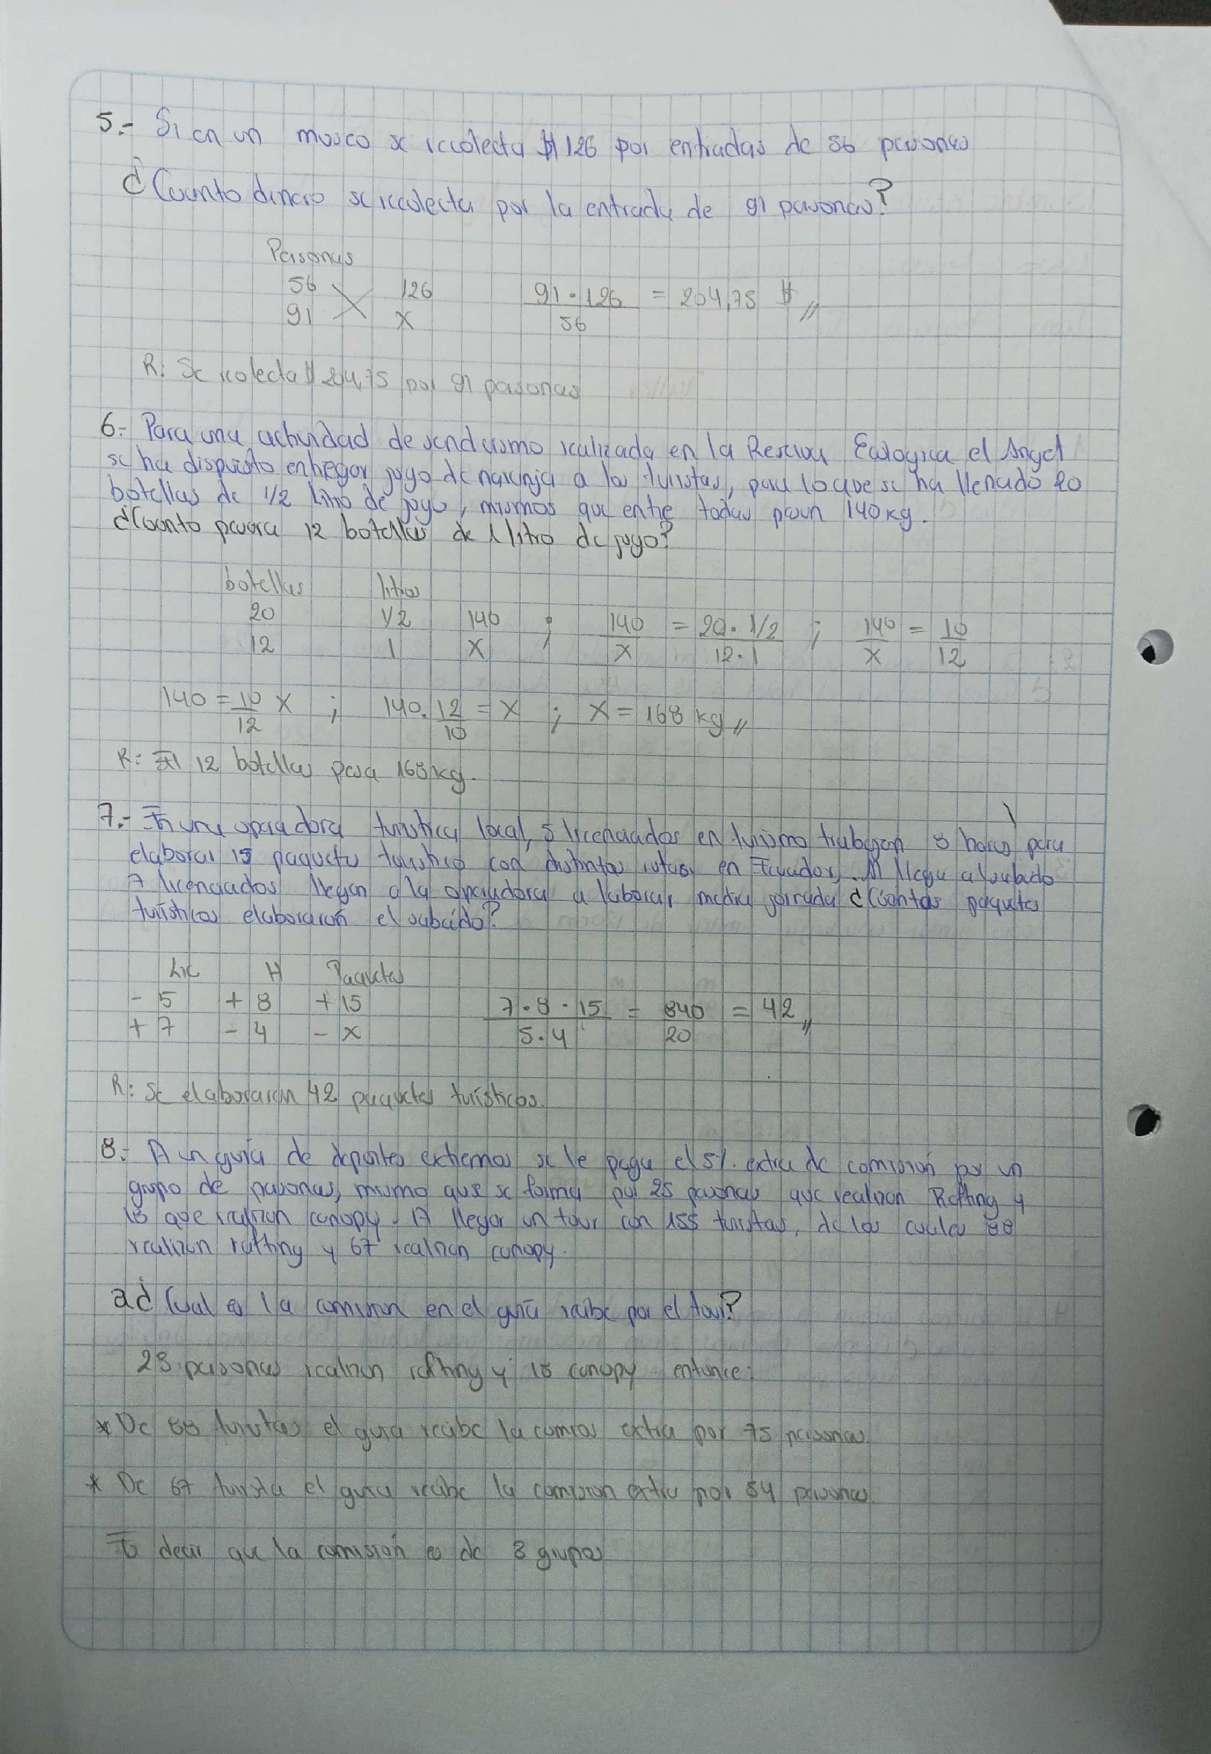 5.- Si en un museo se recolecta $126 por entradas de 56 personas
¿Cuanto dinero se recolecta por la entrada de 91 personas?
Personas
56 126
91 x
91 · 126 / 56 = 204,75 $ //
R: Se recolecta $ 204,75 por 91 personas
6.- Para una actividad de senderismo realizada en la Reserva Ecologica el Angel
se ha dispuesto entregar jugo de naranja a los turistas, para lo que se ha llenado 20
botellas de 1/2 litro de jugo, mismos que entre todas pesan 140 kg.
¿Cuanto pesara 12 botellas de 1 litro de jugo?
botellas litros
20 1/2 140 ; 140/x = 20 · 1/2 / 12 · 1 ; 140/x = 10/12
12 1 x
140 = 10/12 x ; 140 · 12/10 = x ; x = 168 kg //
R: 12 botellas pesa 168 kg.
7.- En una operadora turistica local, 5 licenciados en turismo trabajan 8 horas para
elaborar 15 paquetes turisticos con distintas rutas en Ecuador. Al llegar al sabado
7 licenciados llegan a la operadora a laborar media jornada ¿Cuantos paquetes
turisticos elaboraron el sabado?
Lic H Paquetes
- 5 + 8 + 15
+ 7 - 4 - x
7 · 8 · 15 / 5 · 4 = 840 / 20 = 42 //
R: Se elaboraron 42 paquetes turisticos.
8.- A un guia de deportes extremos se le paga el 5% extra de comision por un
grupo de personas, mismo que se forma por 25 personas que realizan Rafting y
18 que realizan canopy. A llegar un tour con 155 turistas, de los cuales 88
realizan rafting y 67 realizan canopy.
a ¿Cual es la comision en el guia recibe por el tour?
25 personas realizan rafting y 18 canopy entonces
* De 88 turistas el guia recibe la comision extra por 75 personas.
* De 67 turista el guia recibe la comision extra por 54 personas.
Es decir que la comisión es de 3 grupos